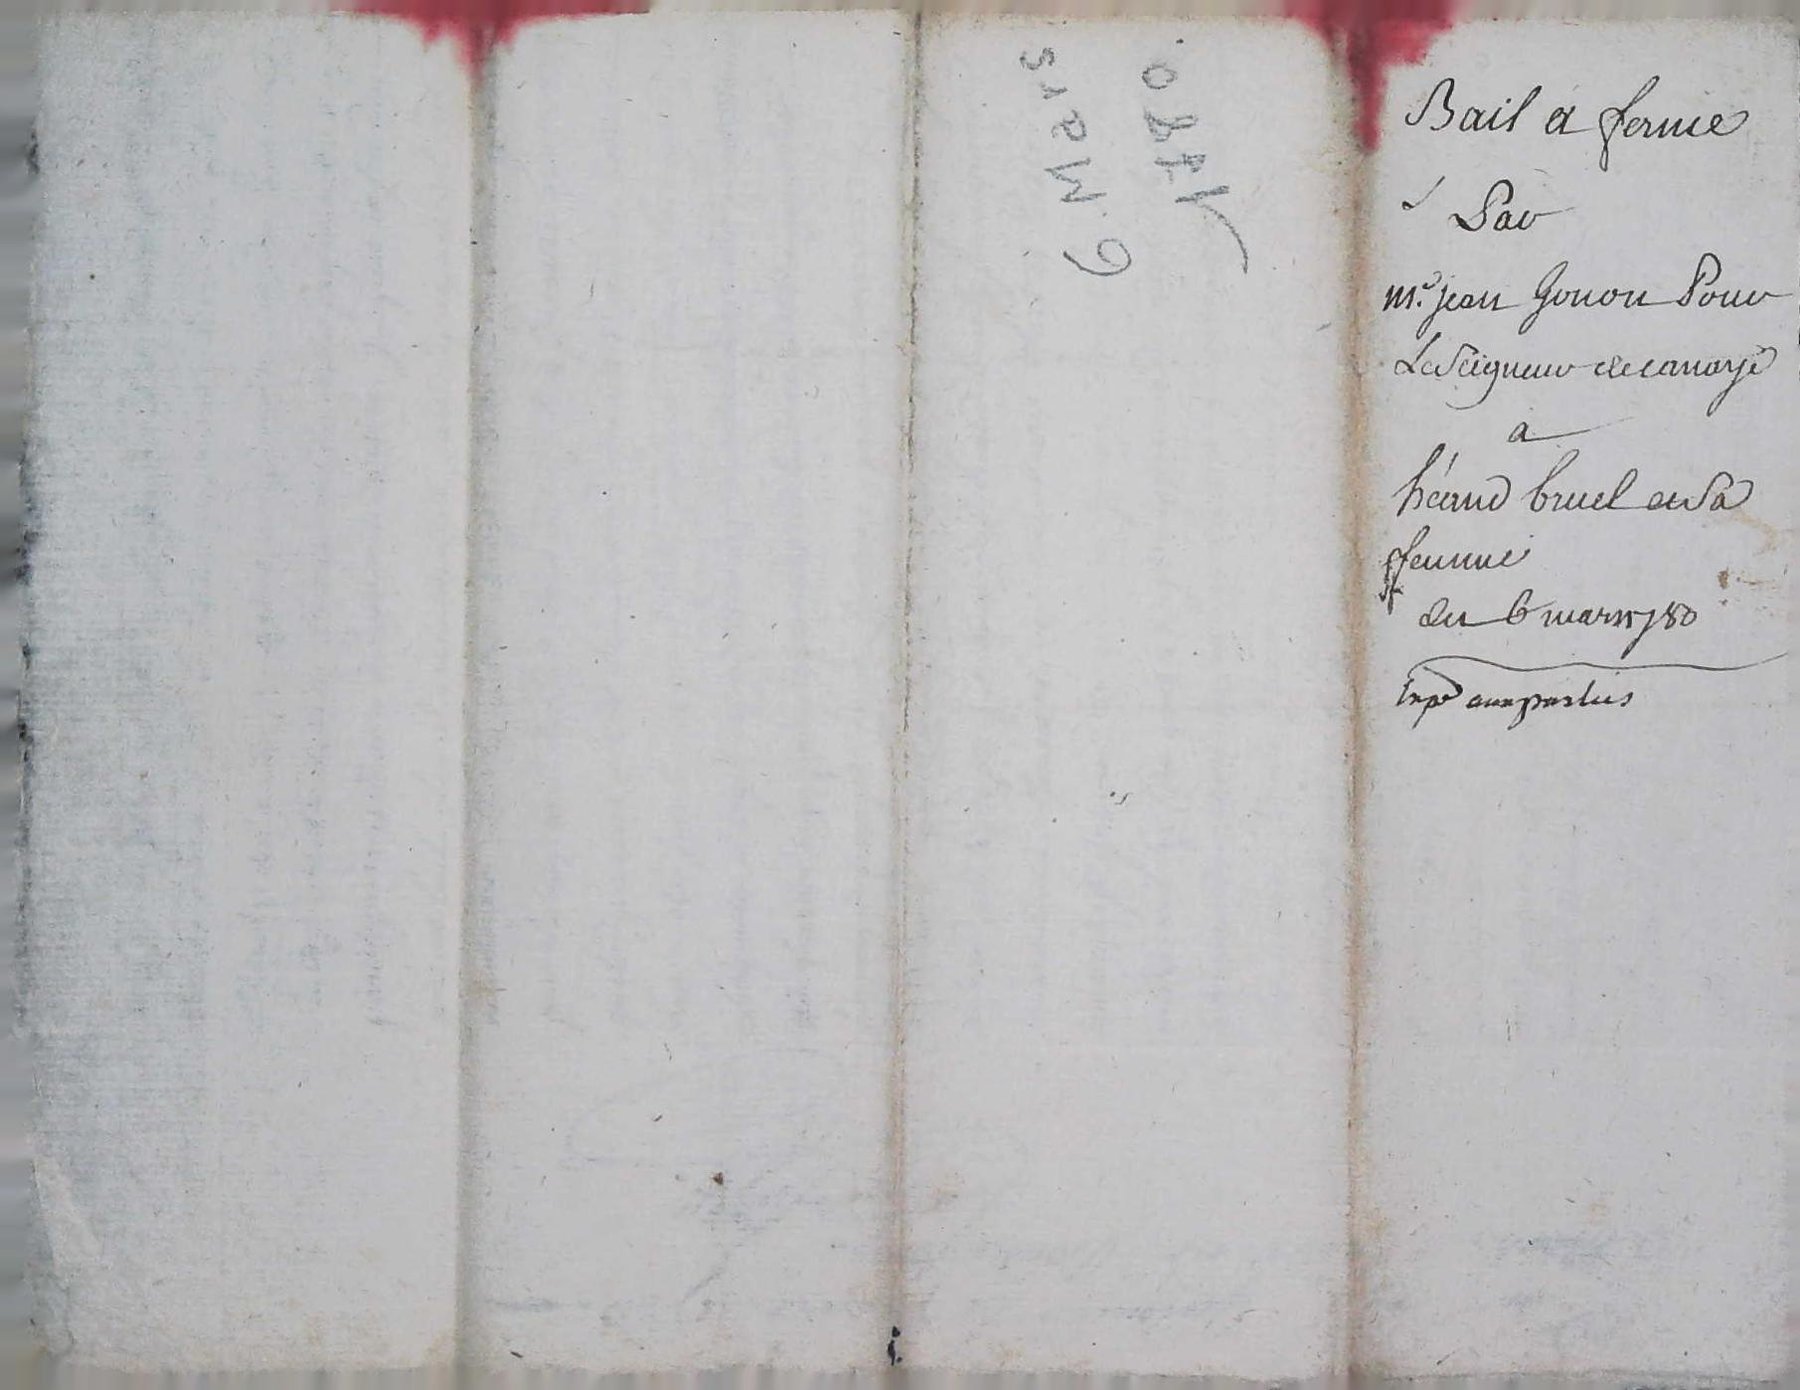 1780
6 Mars
Bail a ferme
Par
Mr. jean Gonon Pour
Le Seigneur de
a
bruel et Sa
femme
du 6 mars 1780
Expé aux parties